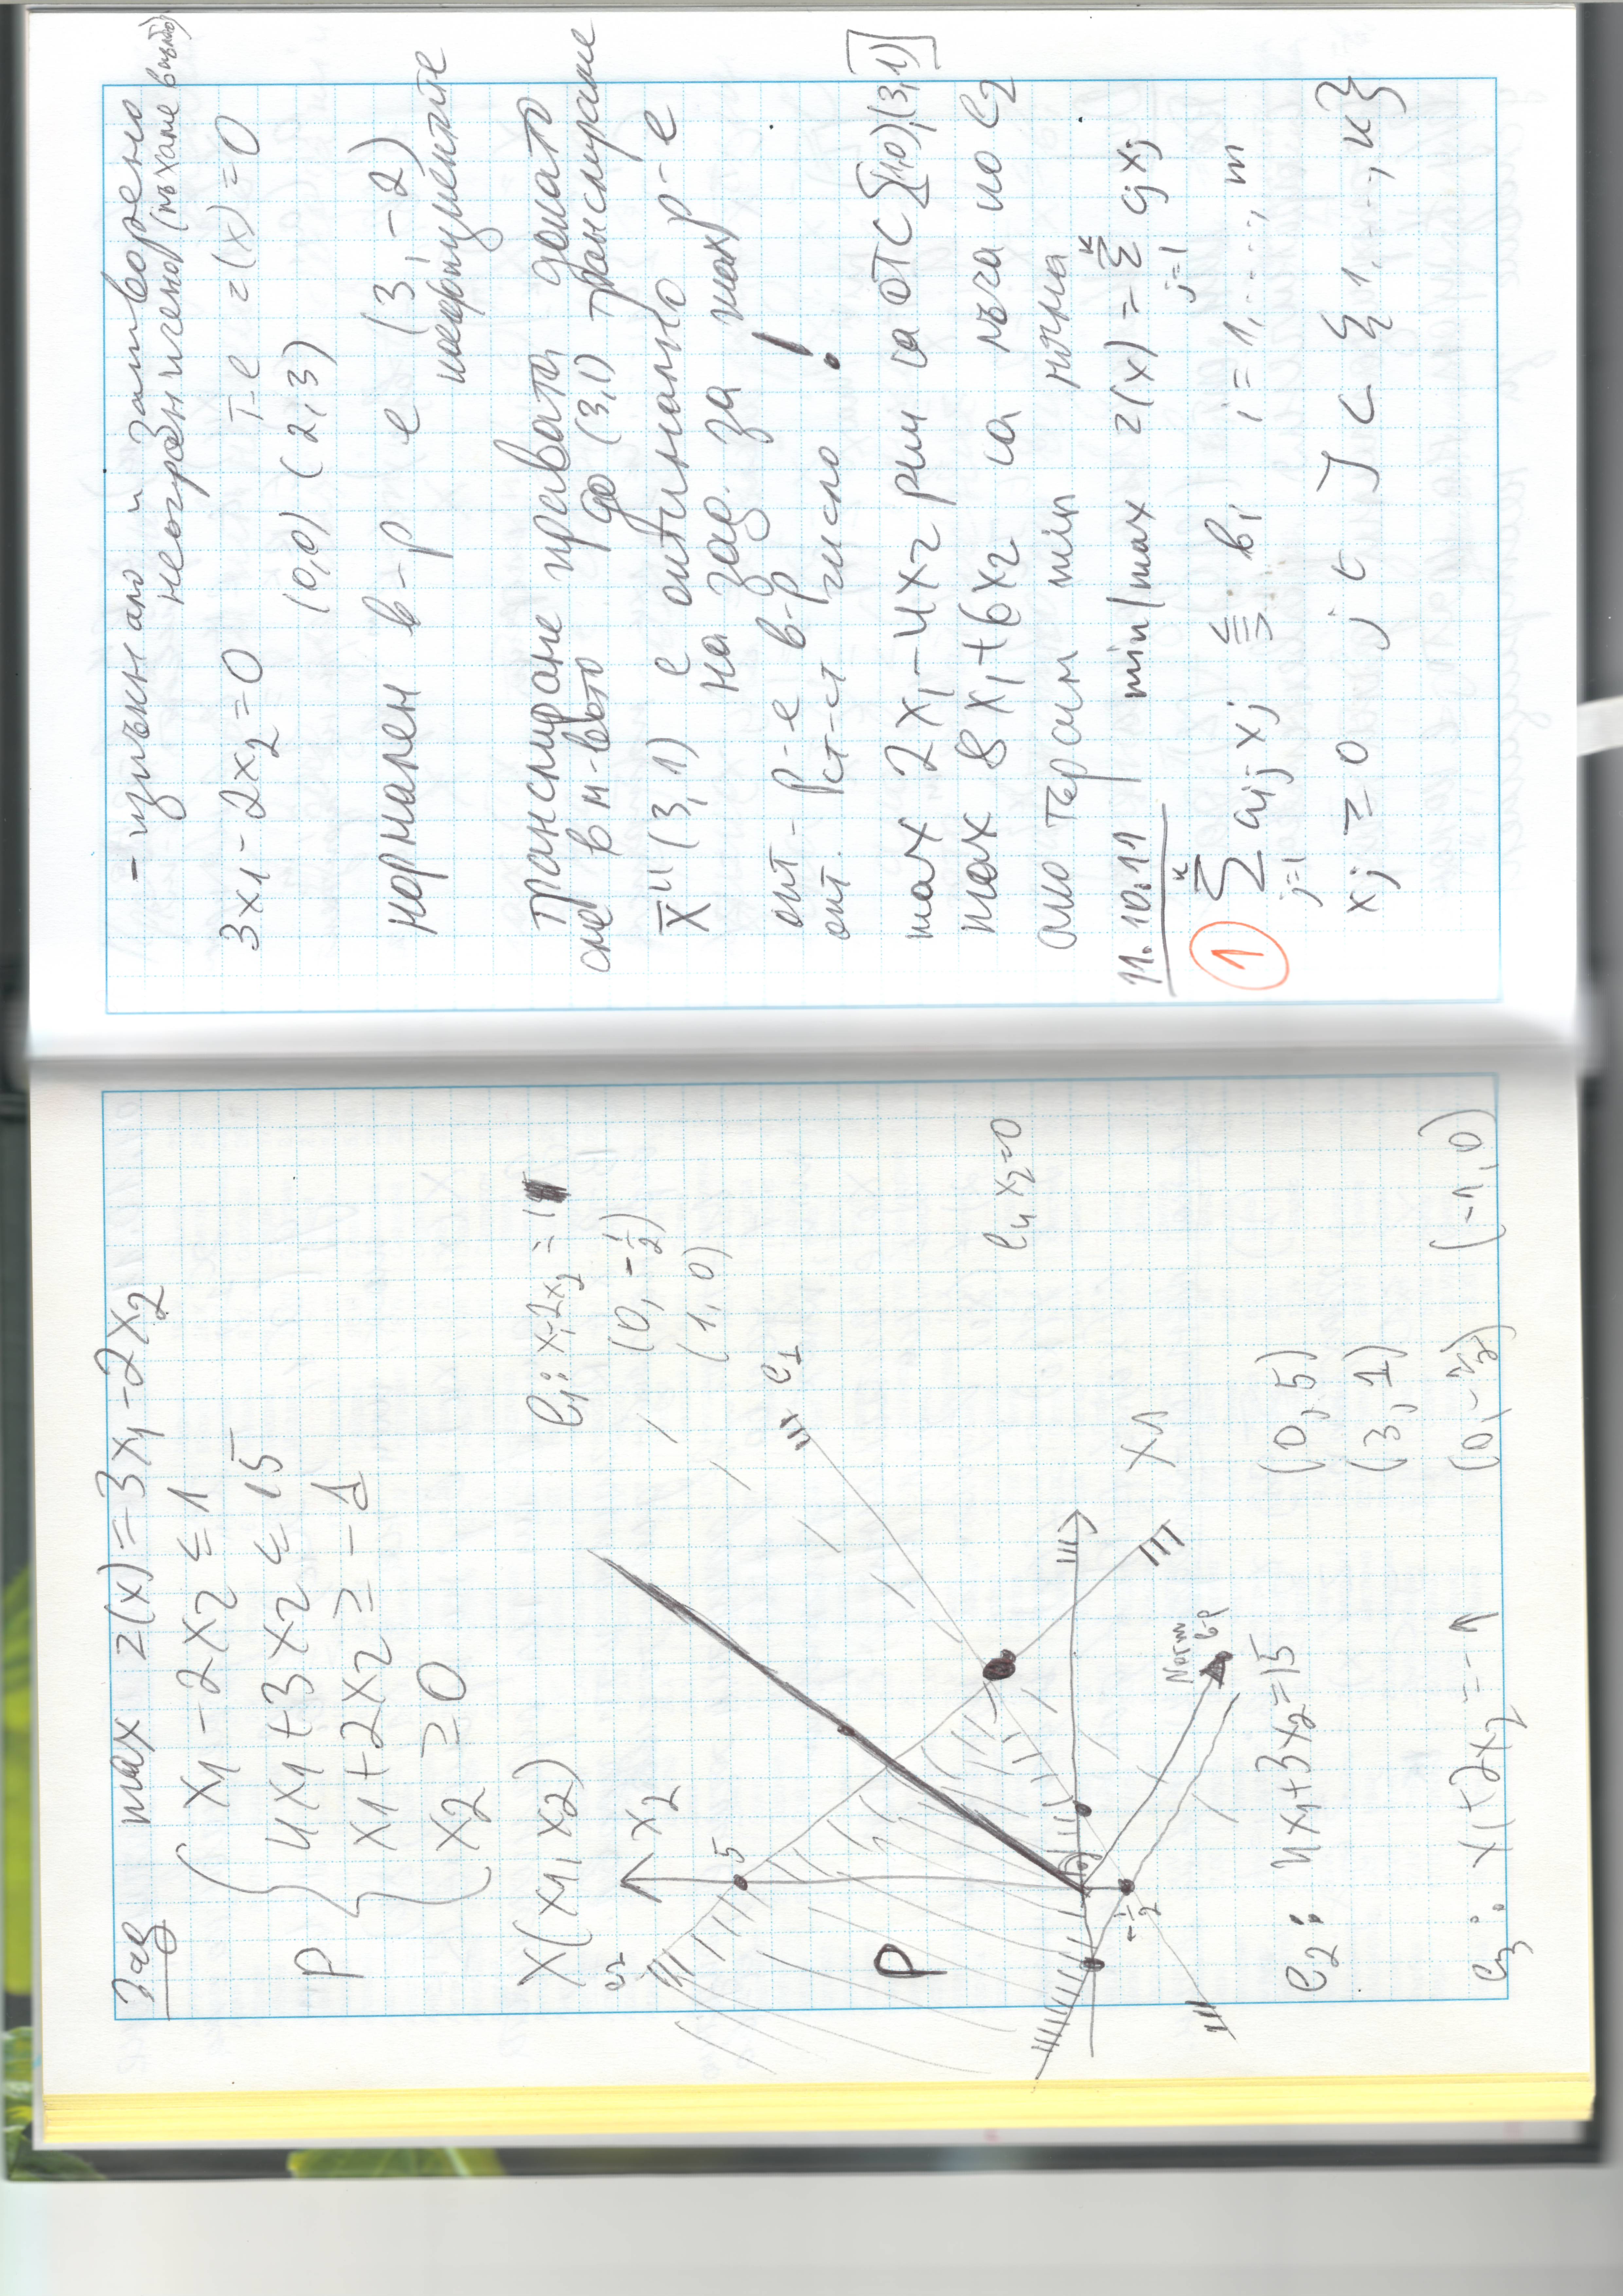 Зад max z(x) = 3x₁ - 2x₂
P { x₁ - 2x₂ ≤ 1
4x₁ + 3x₂ ≤ 15
x₁ + 2x₂ ≥ -1
x₂ ≥ 0
X(x₁, x₂)
l₁: x₁-2x₂ = 1
(0, -1/2)
(1, 0)
x₂
l₂
5
l₁
P
l₄ x₂=0
0
x₁
-1/2
Norm в-р
l₂: 4x₁+3x₂=15 (0, 5)
(3, 1)
l₃: x₁+2x₂ = -1 (0, -1/2) (-1, 0)
- изпъкнало и затворено
неограничено
3x₁ - 2x₂ = 0 т-е z(x) = 0
(0,0) (2,3)
нормален в-р е (3, -2)
коефициентите
транслираме правата докато
сме в м-вото до (3,1) транслираме
x̄" (3,1) е оптимално р-е
на зад. за max
опт. р-е в-р
опт. ст-ст число !
max 2x₁ - 4x₂ рит са отс [(1,0),(3,1)]
max 8x₁ + 6x₂ са лъча по l₂
ако търсим min няма
11.10.11 min/max z(x) = Σ_{j=1}^{n} cⱼxⱼ
① Σ_{j=1}^{n} aᵢⱼ xⱼ ≤ = ≥ bᵢ i = 1, ..., m
xⱼ ≥ 0 j ∈ J ⊂ {1, ..., n}